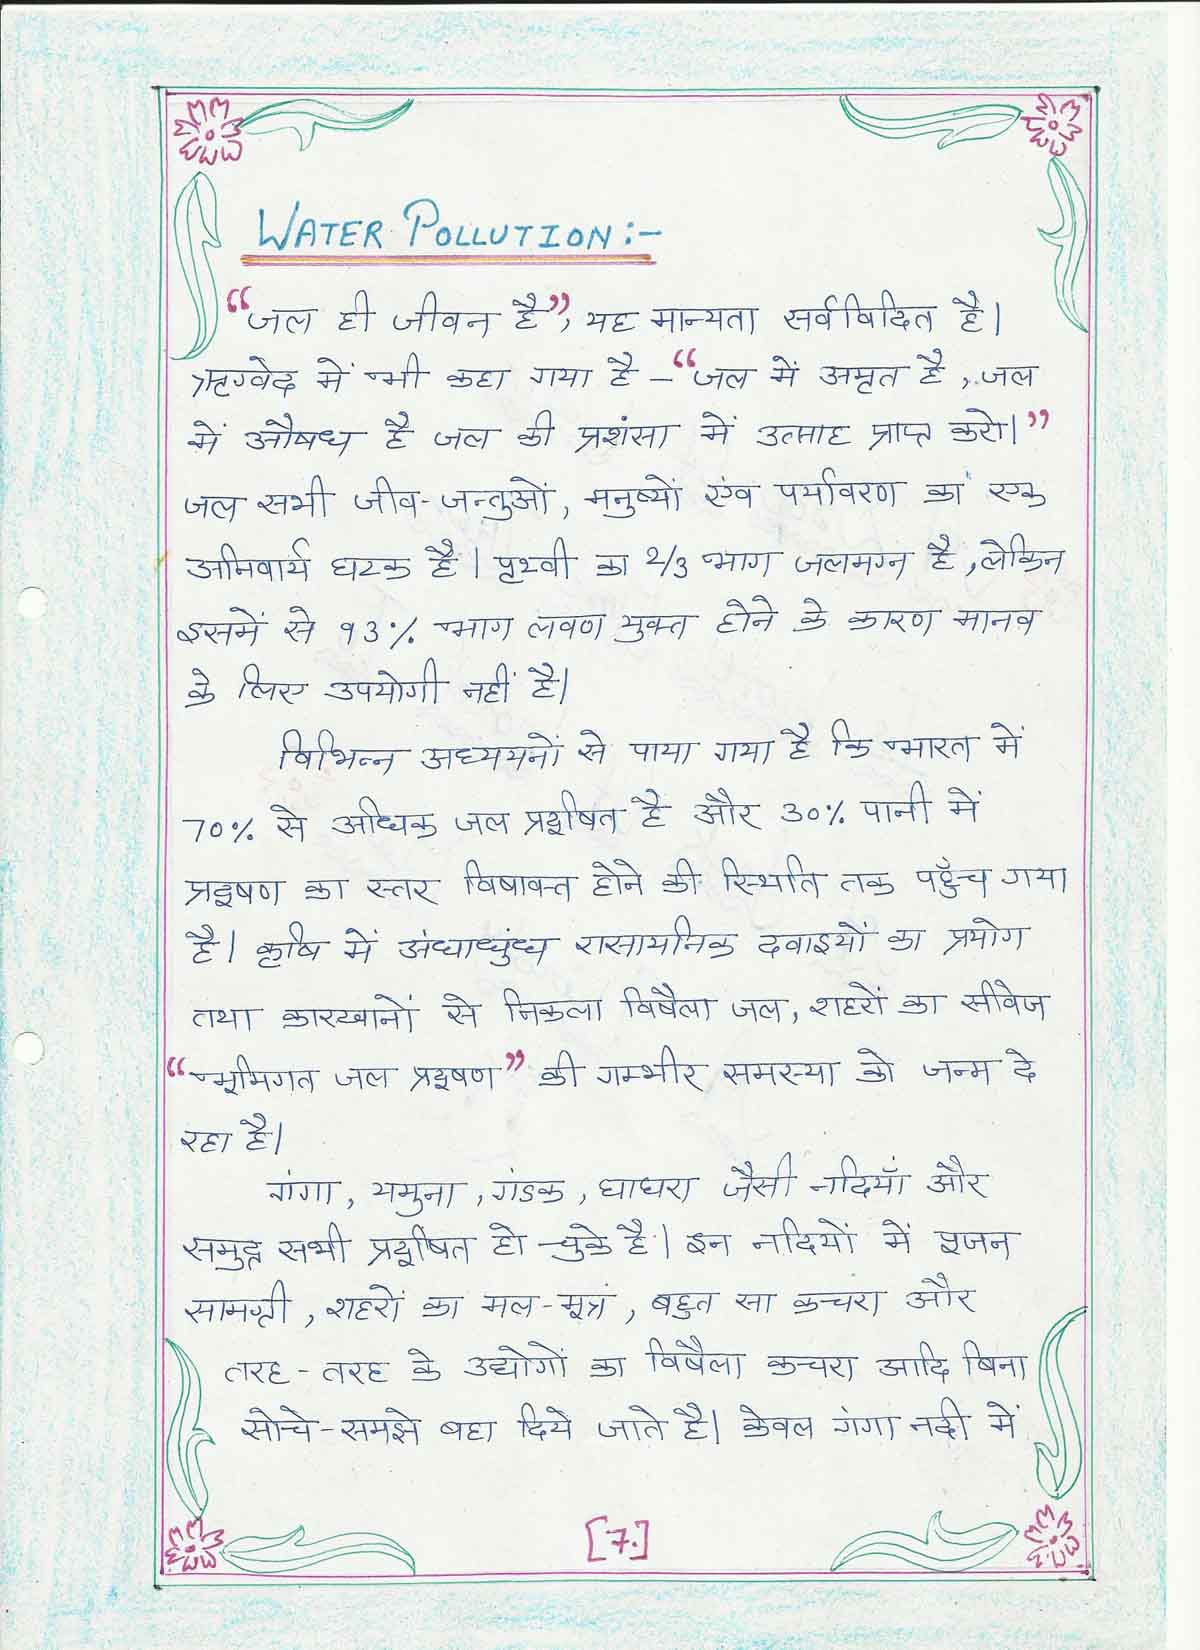 WATER POLLUTION:-
“जल ही जीवन है”, यह मान्यता सर्वविदित है।
ऋग्वेद में भी कहा गया है – “जल में अमृत है, जल
में औषध है जल की प्रशंसा में उत्साह प्राप्त करो।”
जल सभी जीव-जन्तुओं, मनुष्यों एंव पर्यावरण का एक
अनिवार्य घटक है। पृथ्वी का 2/3 भाग जलमग्न है, लेकिन
इसमें से 93% भाग लवण युक्त होने के कारण मानव
के लिए उपयोगी नहीं है।
विभिन्न अध्ययनों से पाया गया है कि भारत में
70% से अधिक जल प्रदूषित है और 30% पानी में
प्रदूषण का स्तर विषाक्त होने की स्थिति तक पहुँच गया
है। कृषि में अंधाधुंध रासायनिक दवाइयों का प्रयोग
तथा कारखानों से निकला विषैला जल, शहरों का सीवेज
“भूमिगत जल प्रदूषण” की गम्भीर समस्या को जन्म दे
रहा है।
गंगा, यमुना, गंडक, घाघरा जैसी नदियाँ और
समुद्र सभी प्रदूषित हो चुके है। इन नदियों में पूजन
सामग्री, शहरों का मल-मूत्र, बहुत सा कचरा और
तरह-तरह के उद्योगों का विषैला कचरा आदि बिना
सोचे-समझे बहा दिये जाते है। केवल गंगा नदी में
[7.]